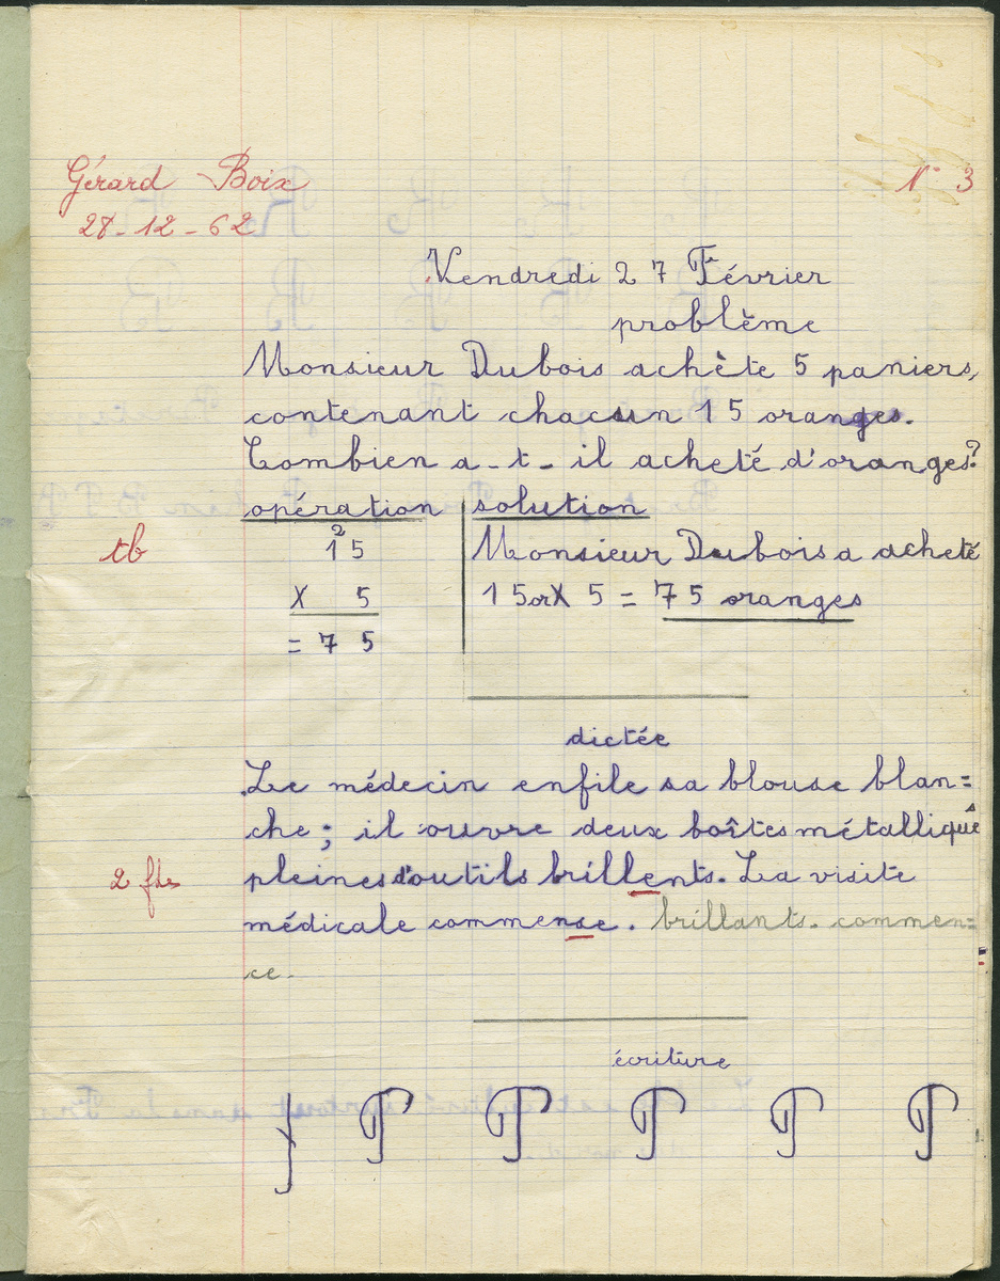 Gérard Boix
N° 3
28-12-62
Vendredi 27 Février
problème
Monsieur Dubois achète 5 paniers,
contenant chacun 15 oranges.
Combien a-t-il acheté d'oranges?
opération solution
tb
2
15 Monsieur Dubois a acheté
X 5 15 or X 5 = 75 oranges
= 75
dictée
Le médecin enfile sa blouse blan=
che; il ouvre deux boîtes métalliques
2 ftes pleines d'outils brillents. La visite
médicale commense. brillants. commen=
ce.
écriture
P P P P P